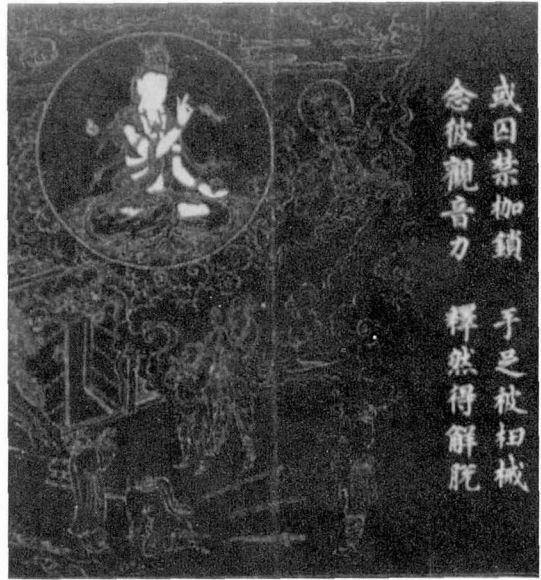 或囚禁枷鎖　手足被杻械
念彼觀音力　釋然得解脫